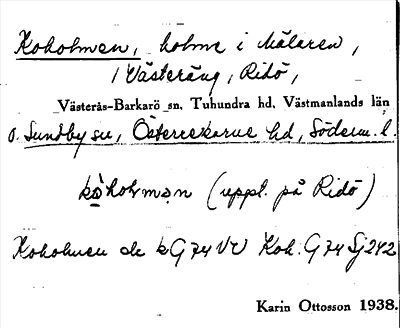 Koholmen, holme i Mälaren,
i Västeräng, Ridö,
Västerås-Barkarö sn, Tuhundra hd, Västmanlands län
o. Sundby sn, Österrekarne hd, Söderm. l.
kòholmən (uppt. på Ridö)
Koholmen ek bG74 VV Koh. G74 Sj242
Karin Ottosson 1938.